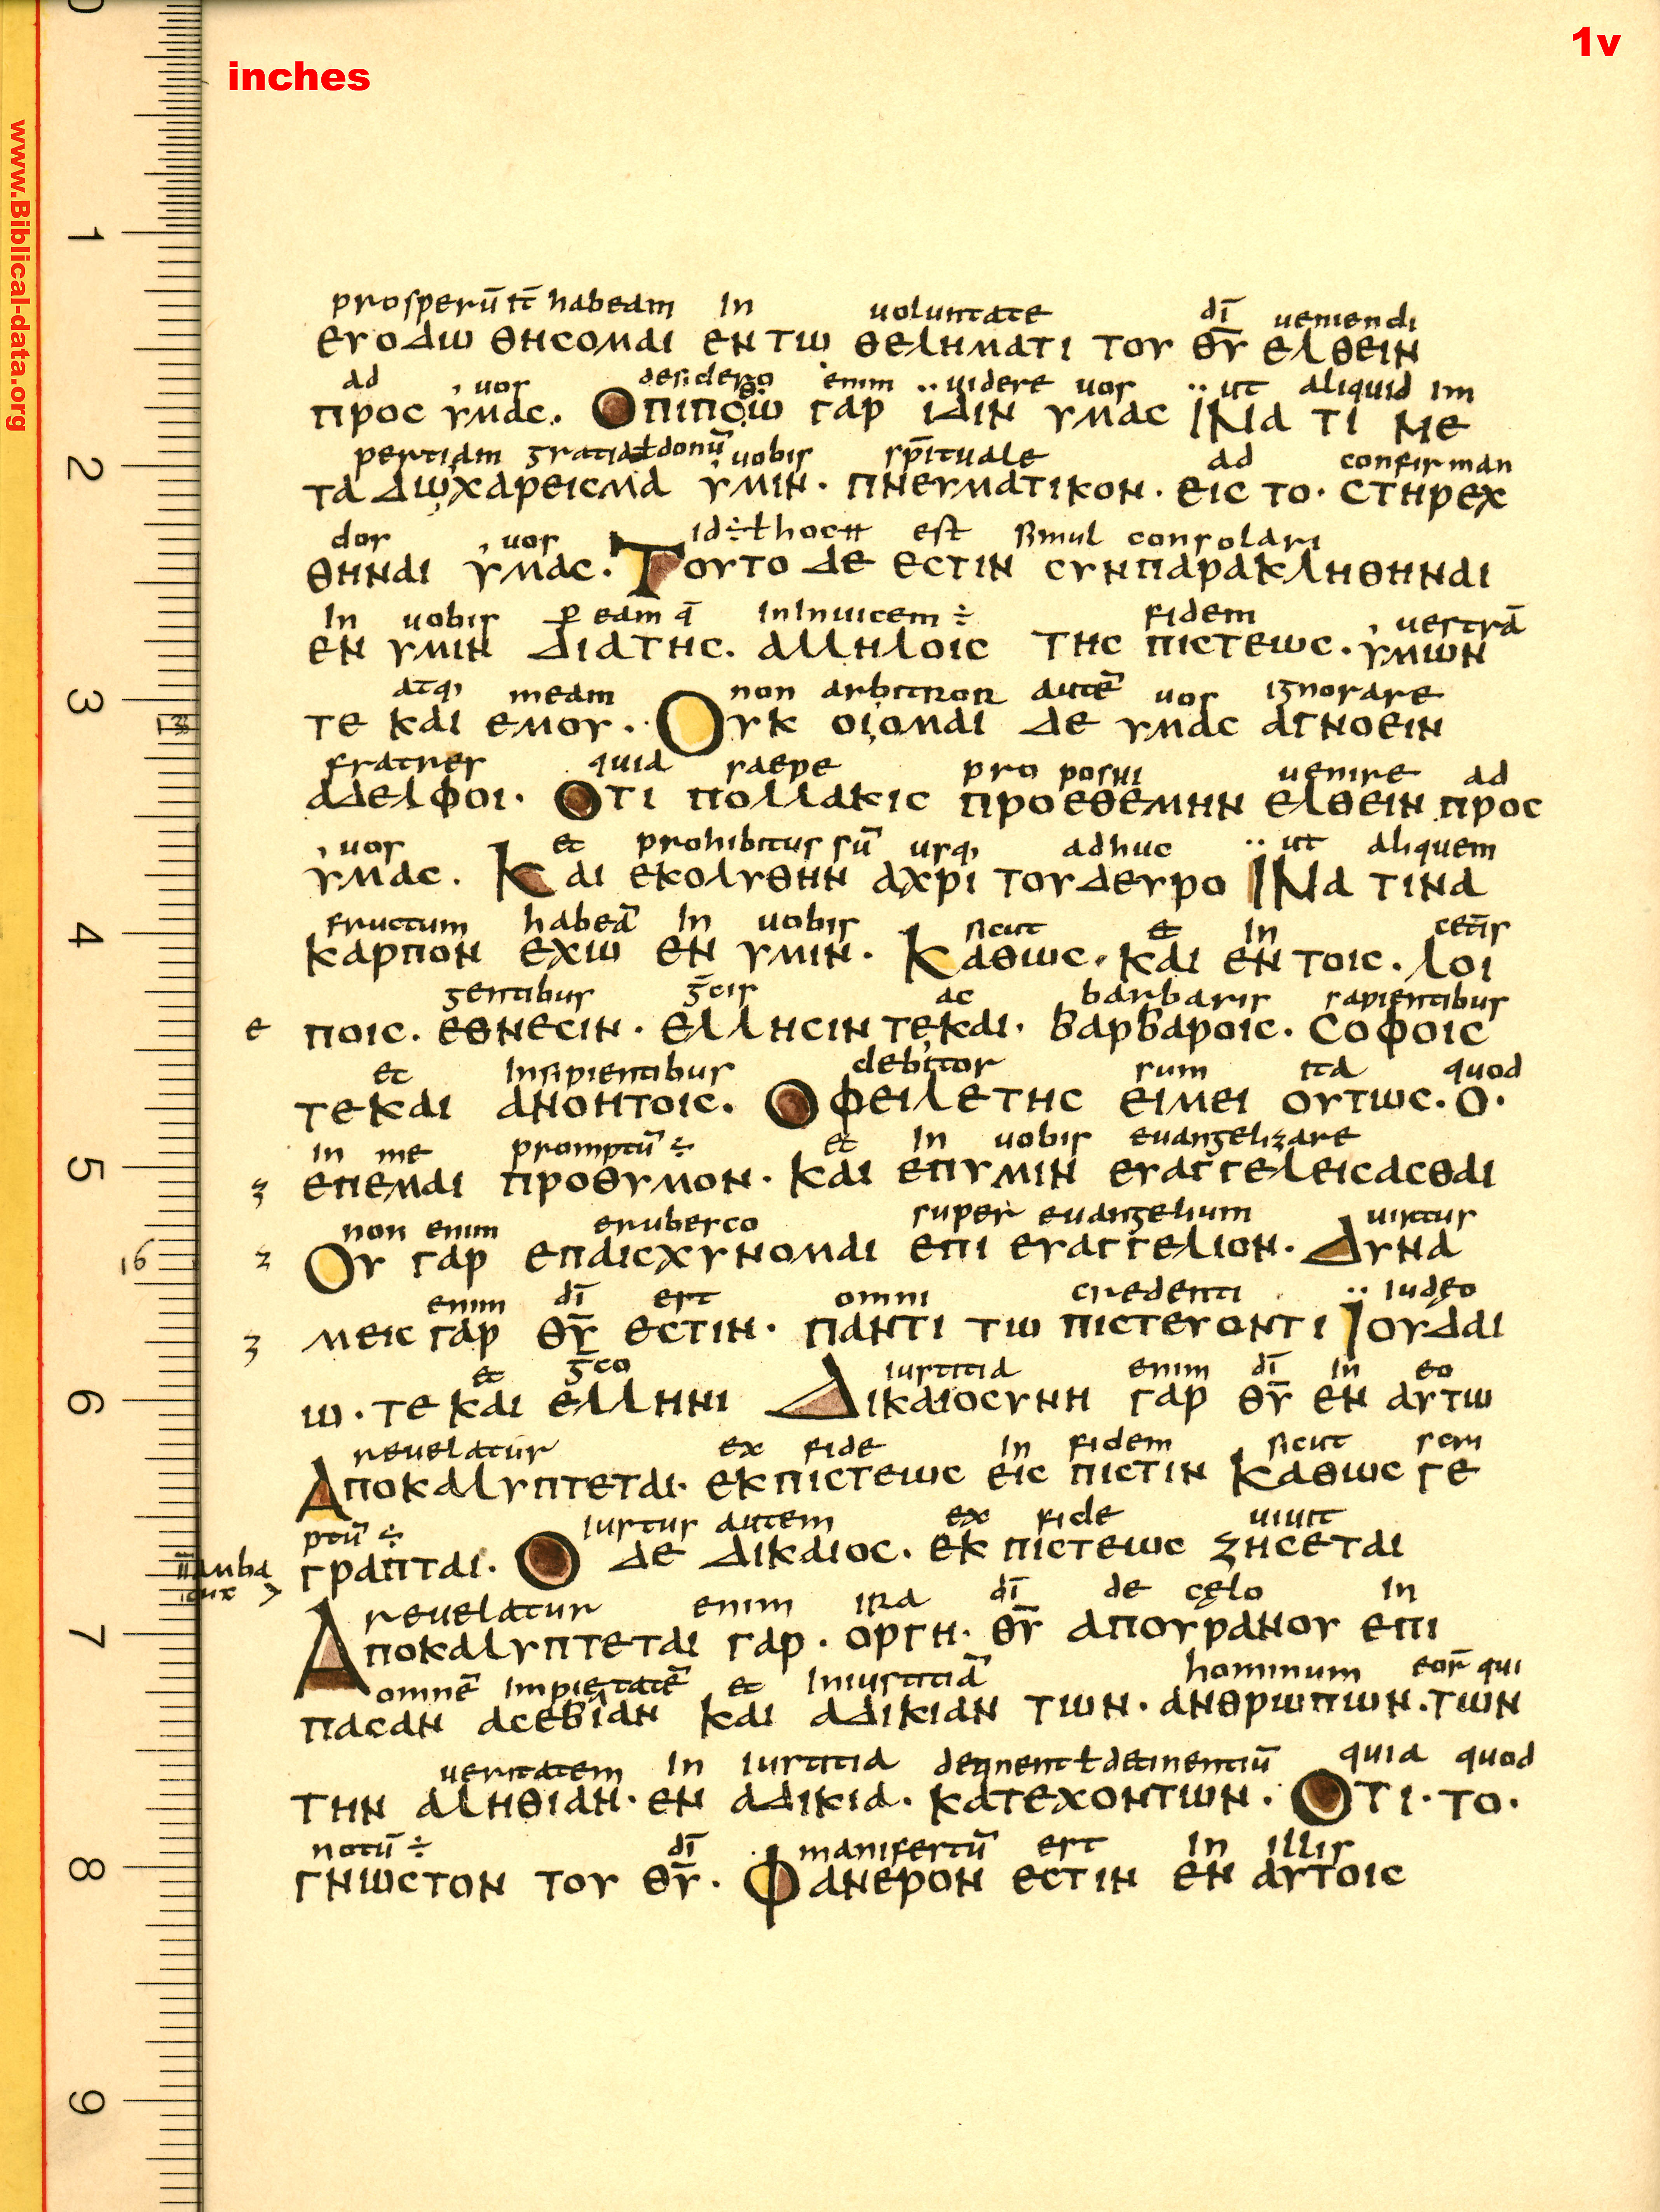 1v
inches
www.Biblical-data.org
0
1
2
3
4
5
6
7
8
9
prosperū habeam In uoluntate dī ueniendi
ΕΥΟΔΩ ΘΗCΟΜΑΙ ΕΝ ΤΩ ΘΕΛΗΜΑΤΙ ΤΟΥ Θ̅Υ̅ ΕΛΘΕΙΝ
ad uos desidero enim uidere uos ut aliquid Im
ΠΡΟC ΥΜΑC. ΟΠΙΠΟΘΩ ΓΑΡ ΙΔΙΝ ΥΜΑC ΙΝΑ ΤΙ ΜΕ
pertiam gratiā ł donū uobis sp̅ituale ad confirman
ΤΑ ΔΩ ΧΑΡΕΙCΜΑ ΥΜΙΝ· ΠΝΕΥΜΑΤΙΚΟΝ· ΕΙC ΤΟ· CΤΗΡΕΧ
dos uos id ÷ ł hoc est simul consolari
ΘΗΝΑΙ ΥΜΑC. ΤΟΥΤΟ ΔΕ ΕCΤΙΝ CΥΝΠΑΡΑΚΛΗΘΗΝΑΙ
In uobis p eam q̄ InInuicem ÷ fidem uestrā
ΕΝ ΥΜΙΝ ΔΙΑΤΗC. ΑΛΛΗΛΟΙC ΤΗC ΠΙCΤΕΩC· ΥΜΩΝ
atq; meam non arbitror autē uos Ignorare
ΤΕ ΚΑΙ ΕΜΟΥ· ΟΥΚ ΟΙΟΜΑΙ ΔΕ ΥΜΑC ΑΓΝΟΕΙΝ
fratres quia saepe pro posui uenire ad
ΑΔΕΛΦΟΙ· ΟΤΙ ΠΟΛΛΑΚΙC ΠΡΟΕΘΕΜΗΝ ΕΛΘΕΙΝ ΠΡΟC
uos et prohibitus sū usq; adhuc ut aliquem
ΥΜΑC. ΚΑΙ ΕΚΟΛΥΘΗΝ ΑΧΡΙ ΤΟΥΔΕΥΡΟ ΙΝΑ ΤΙΝΑ
fructum habeā In uobis sicut et In cet̄is
ΚΑΡΠΟΝ ΕΧΩ ΕΝ ΥΜΙΝ· ΚΑΘΩC· ΚΑΙ ΕΝ ΤΟΙC. ΛΟΙ
gentibus ḡcis ac barbaris sapientibus
ΠΟΙC. ΕΘΝΕCΙΝ· ΕΛΛΗCΙΝ ΤΕΚΑΙ· ΒΑΡΒΑΡΟΙC. CΟΦΟΙC
et Insipientibus debitor sum ita quod
ΤΕΚΑΙ ΑΝΟΗΤΟΙC. ΟΦΕΙΛΕΤΗC ΕΙΜΕΙ ΟΥΤΩC. Ο·
In me promptū ÷ et In uobis euangelizare
ΕΠΕΜΑΙ ΠΡΟΘΥΜΟΝ· ΚΑΙ ΕΠΥΜΙΝ ΕΥΑΓΓΕΛΕΙCΑCΘΑΙ
non enim erubesco super euangelium uirtus
16 ΟΥ ΓΑΡ ΕΠΑΙCΧΥΝΟΜΑΙ ΕΠΙ ΕΥΑΓΓΕΛΙΟΝ· ΔΥΝΑ
enim dī est omni credenti Iudęo
ΜΕΙC ΓΑΡ Θ̅Υ̅ ΕCΤΙΝ· ΠΑΝΤΙ ΤΩ ΠΙCΤΕΥΟΝΤΙ ΙΟΥΔΑΙ
et ḡco Iustitia enim dī in eo
Ω· ΤΕ ΚΑΙ ΕΛΛΗΝΙ ΔΙΚΑΙΟCΥΝΗ ΓΑΡ Θ̅Υ̅ ΕΝ ΑΥΤΩ
reuelatur ex fide In fidem sicut scri
ΑΠΟΚΑΛΥΠΤΕΤΑΙ· ΕΚ ΠΙCΤΕΩC ΕΙC ΠΙCΤΙΝ ΚΑΘΩC ΓΕ
ptū ÷ Iustus autem ex fide uiuit
ΓΡΑΠΤΑΙ. Ο ΔΕ ΔΙΚΑΙΟC. ΕΚ ΠΙCΤΕΩC ΖΗCΕΤΑΙ
reuelatur enim ira dī de cęlo In
ΑΠΟΚΑΛΥΠΤΕΤΑΙ ΓΑΡ· ΟΡΓΗ· Θ̅Υ̅ ΑΠΟΥΡΑΝΟΥ ΕΠΙ
omnē Impietatē et Iniustitiā hominum eor̄ qui
ΠΑCΑΝ ΑCΕΒΙΑΝ ΚΑΙ ΑΔΙΚΙΑΝ ΤΩΝ· ΑΝΘΡΩΠΩΝ. ΤΩΝ
ueritatem In Iustitia detinent ł detinentiū quia quod
ΤΗΝ ΑΛΗΘΙΑΝ· ΕΝ ΑΔΙΚΙΑ· ΚΑΤΕΧΟΝΤΩΝ· ΟΤΙ· ΤΟ·
notū ÷ dī manifestū est In illis
ΓΝΩCΤΟΝ ΤΟΥ Θ̅Υ̅· ΦΑΝΕΡΟΝ ΕCΤΙΝ ΕΝ ΑΥΤΟΙC